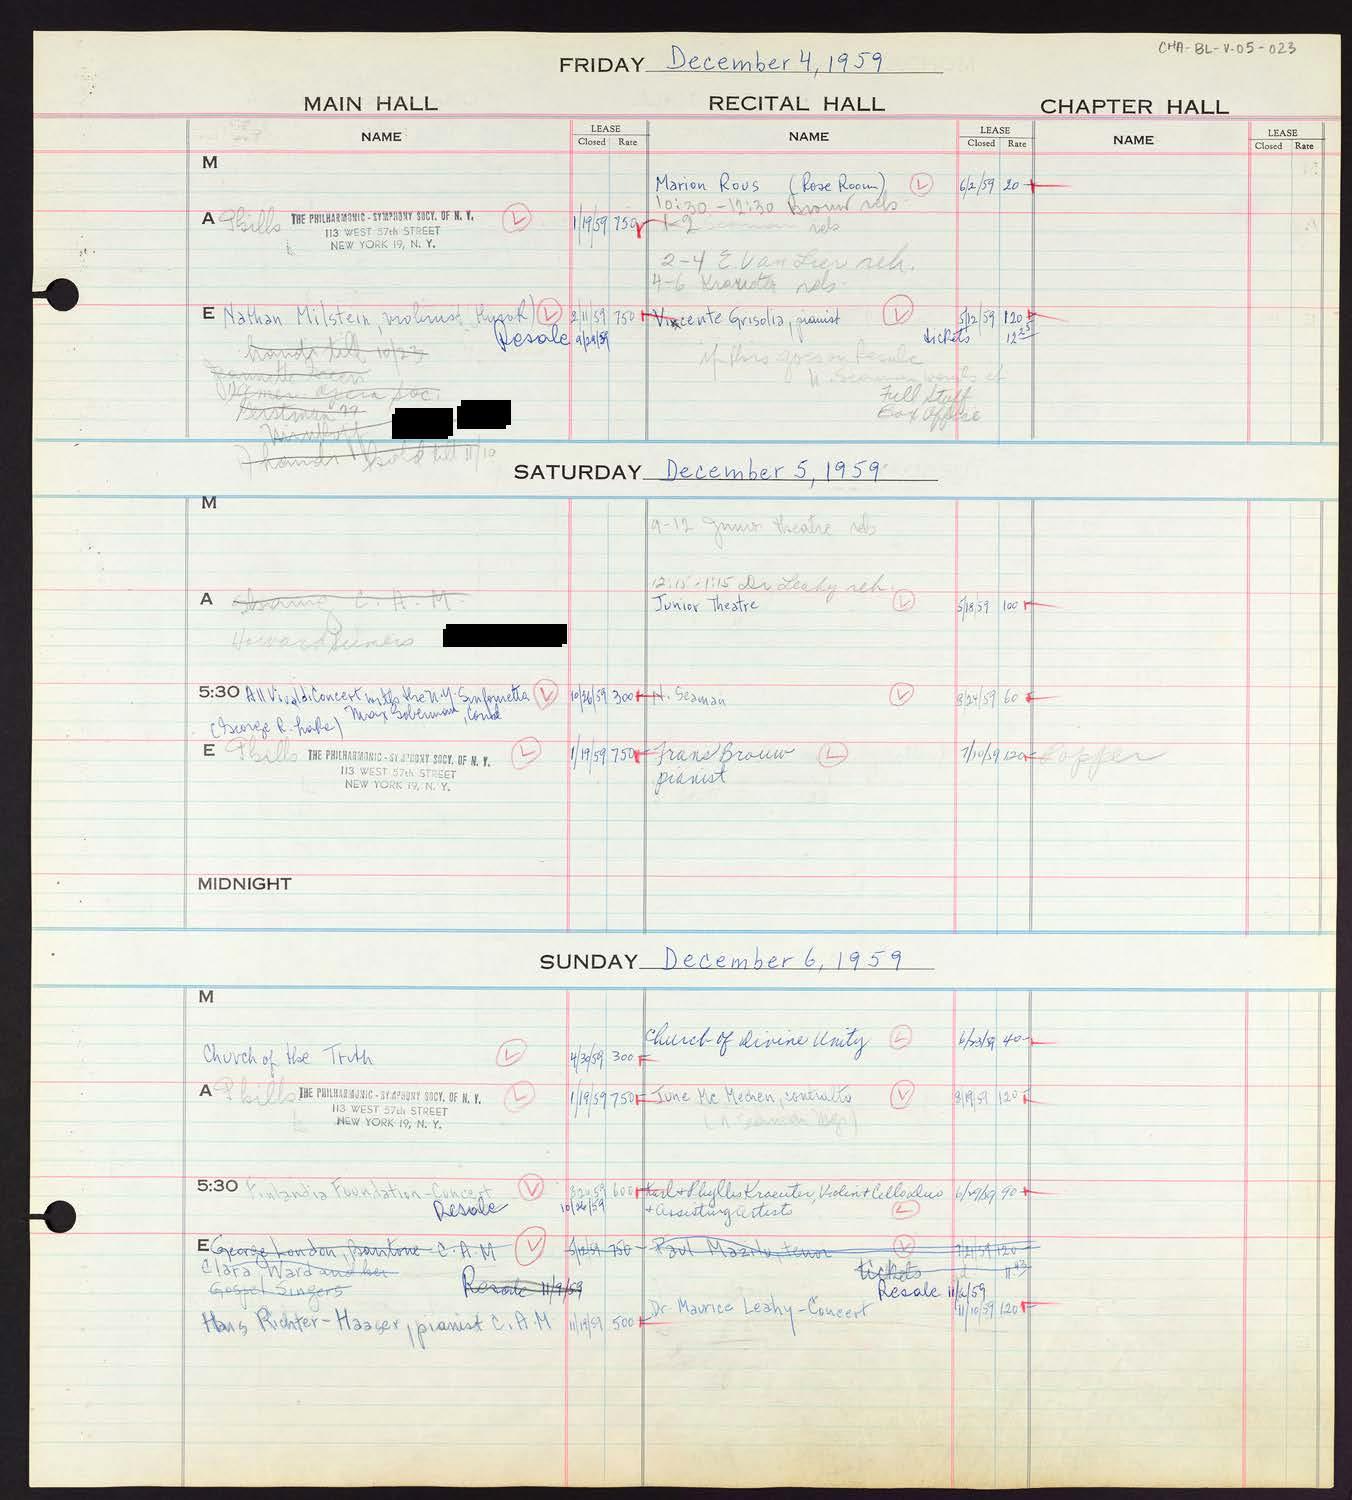 CHA-BL-V-05-023
FRIDAY December 4, 1959
MAIN HALL RECITAL HALL CHAPTER HALL
NAME LEASE Closed Rate NAME LEASE Closed Rate NAME LEASE Closed Rate
M
Marion Rous (Rose Room) 6/2/59 20
10:30-12:30 Brouw reh
A Phills THE PHILHARMONIC-SYMPHONY SOCY. OF N.Y. 1/19/59 750 1-2 reh
113 WEST 57th STREET
NEW YORK 19, N. Y.
2-4 E. Van Lier reh.
4-6 Kraeuter reh.
E Nathan Milstein, violinist (Hurok) 2/11/59 750 Vincente Grisolia, pianist 5/12/59 120
Resale 9/29/59 tickets 12
if this goes on Resale
N. Seaman wants it
Full Staff
Box Office
SATURDAY December 5, 1959
M
9-12 Junior theatre reh
12:15-1:15 Dr Leahy reh.
A C. A. M. Junior Theatre 5/18/59 100
5:30 All Vivaldi Concert with the N.Y. Sinfonietta 10/26/59 300 N. Seaman 8/24/59 60
Max Goberman, Cond
E Phills THE PHILHARMONIC-SYMPHONY SOCY. OF N.Y. 1/19/59 750 Frans Brouw 7/10/59 120 Copper
113 WEST 57th STREET pianist
NEW YORK 19, N. Y.
MIDNIGHT
SUNDAY December 6, 1959
M
Church of Divine Unity 6/23/59 40
Church of the Truth 4/30/59 300
A Phills THE PHILHARMONIC-SYMPHONY SOCY. OF N.Y. 1/19/59 750 June Mc Mechen, contralto 8/19/59 120
113 WEST 57th STREET (N. Seaman Mgr)
NEW YORK 19, N. Y.
5:30 Finlandia Foundation-Concert 600 Karl + Phyllis Kraeuter, Violin + Cello duo 6/29/59 90
Resale 10/26/59 + Assisting Artists
E George London, baritone-C.A.M 5/12/59 750 Paul Mazilu, tenor 120
Clara Ward and her tickets
Gospel Singers Resale 11/9/59 Resale 11/6/59
Hans Richter-Haaser, pianist C.A.M 11/19/59 500 Dr. Maurice Leahy-Concert 11/10/59 120